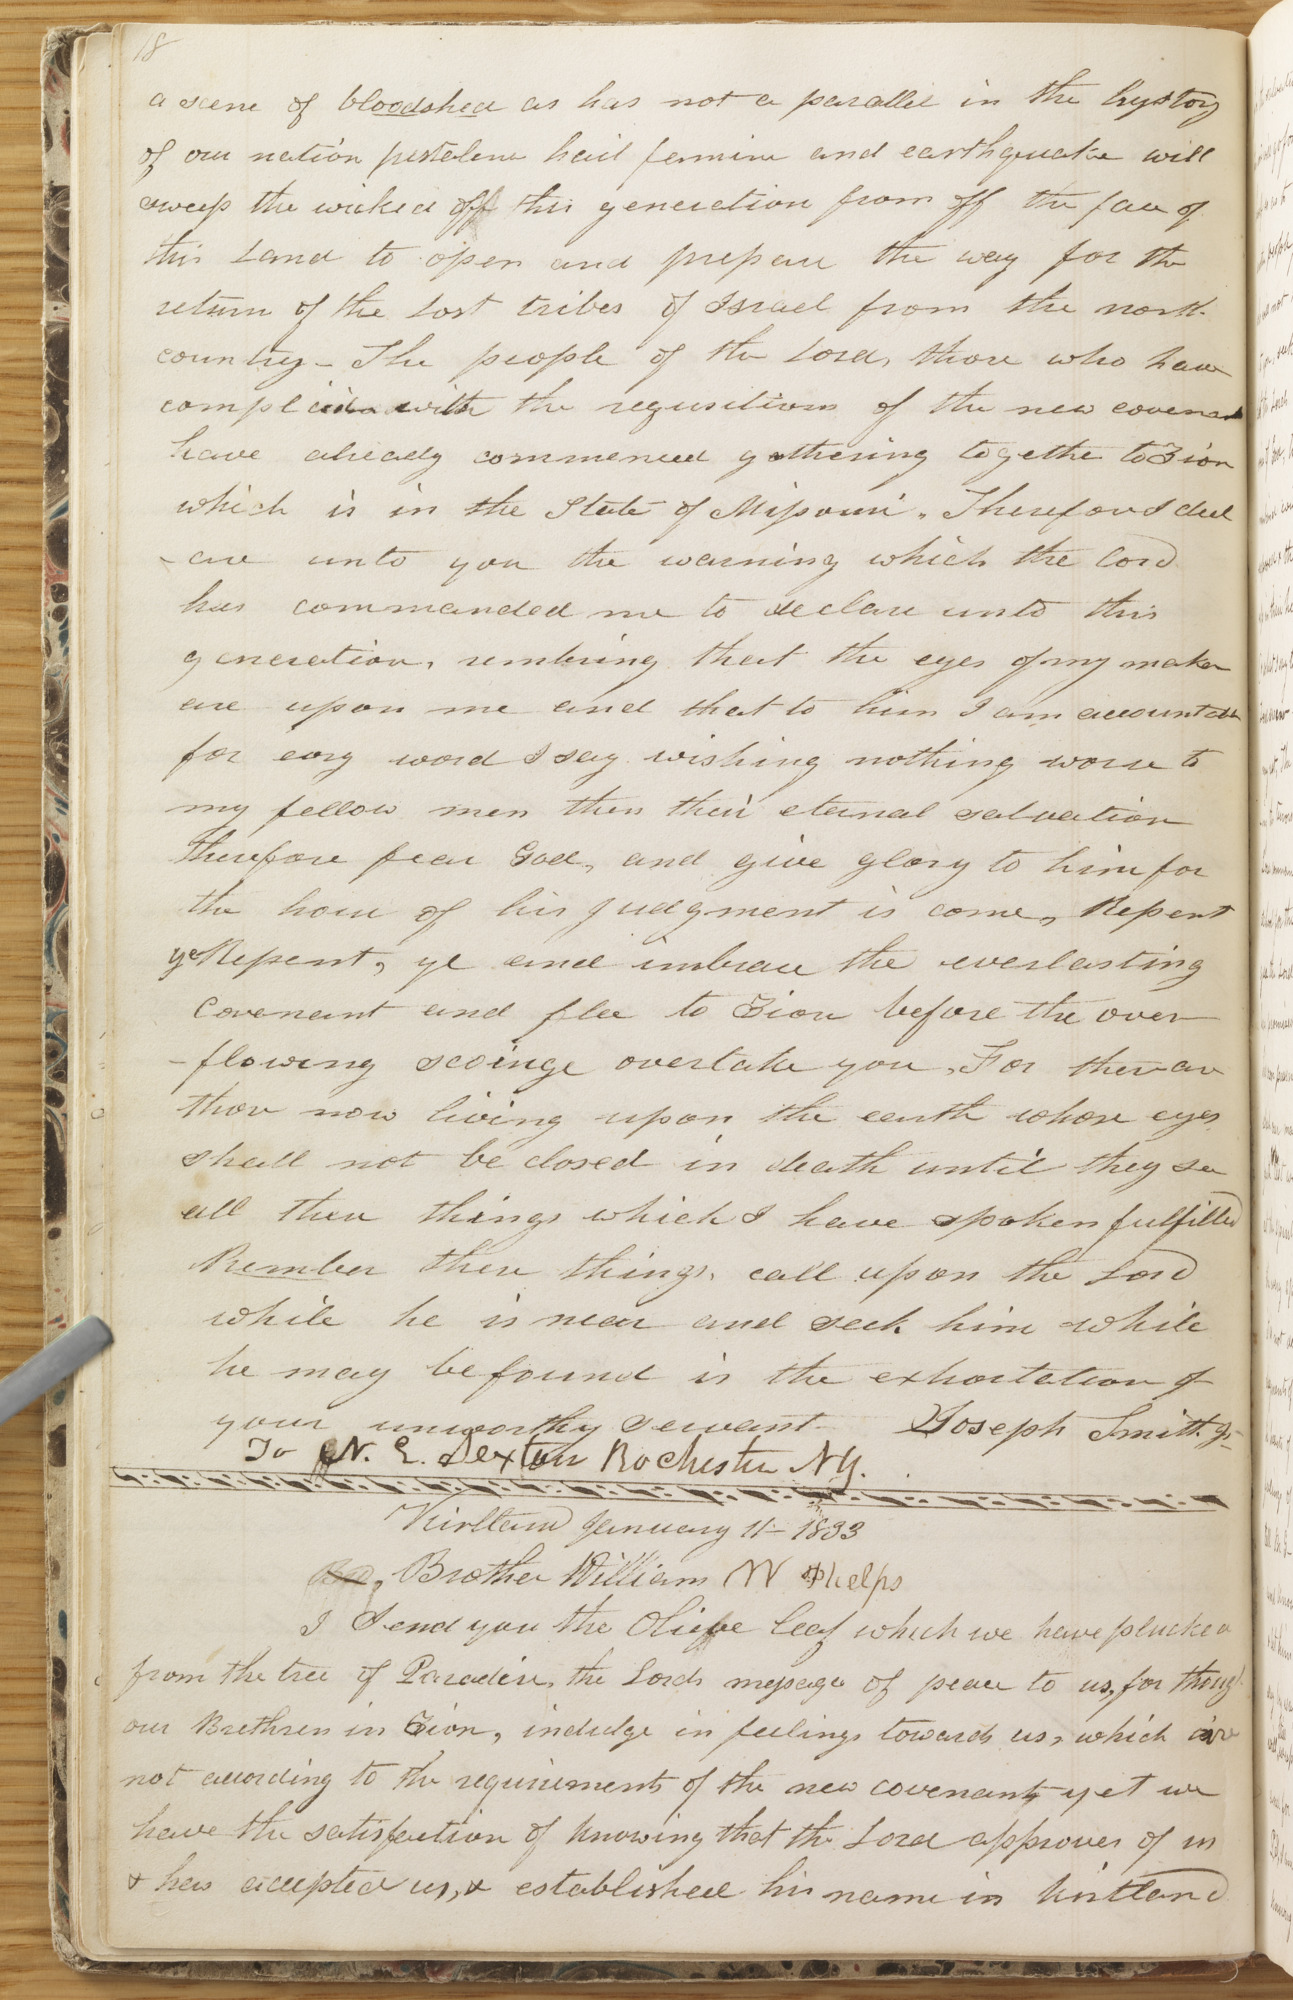 18
a scene of bloodshed as has not a parallel in the hystory
of our nation pestelence hail famine and earthquake will
sweep the wicked off this generation from off the face of
this Land to open and prepare the way for the
return of the lost tribes of Israel from the north
country - The people of the Lord, those who have
complied with the requsitions of the new covenant
have already commenced gathering togethe to Zion
which is in the State of Missouri. Therefore I decl
-are unto you the warning which the Lord
has commanded me to declare unto this
generation, rembring that the eyes of my maker
are upon me and that to him I am accountabl
for evry word I say wishing nothing worse to
my fellow men then their eternal salvation
therefore fear God, and give glory to him for
the hour of his judgment is come, Repent
ye Repent, ye and imbrace the everlasting
Covenant and flee to Zion before the over
-flowing scourge overtake you, For there are
those now living upon the earth whose eyes
shall not be closed in death until they see
all these things which I have spoken fulfilled
Rember these things, call upon the Lord
while he is near and seek him while
he may be found is the exhortation of
your unworthy servant Joseph Smith Jr
To N. E. Sexton Rochester N.Y.
Kirtland January 11- 1833
Brother William W Phelps
I Send you the Olieve leaf which we have plucked
from the tree of Paradise, the Lords message of peace to us, for though
our Brethren in Zion, indulge in feelings towards us, which are
not according to the requirements of the new covenant yet we
have the satisfaction of knowing that the Lord approves of us
& has accepted us, & established his name in Kirtland